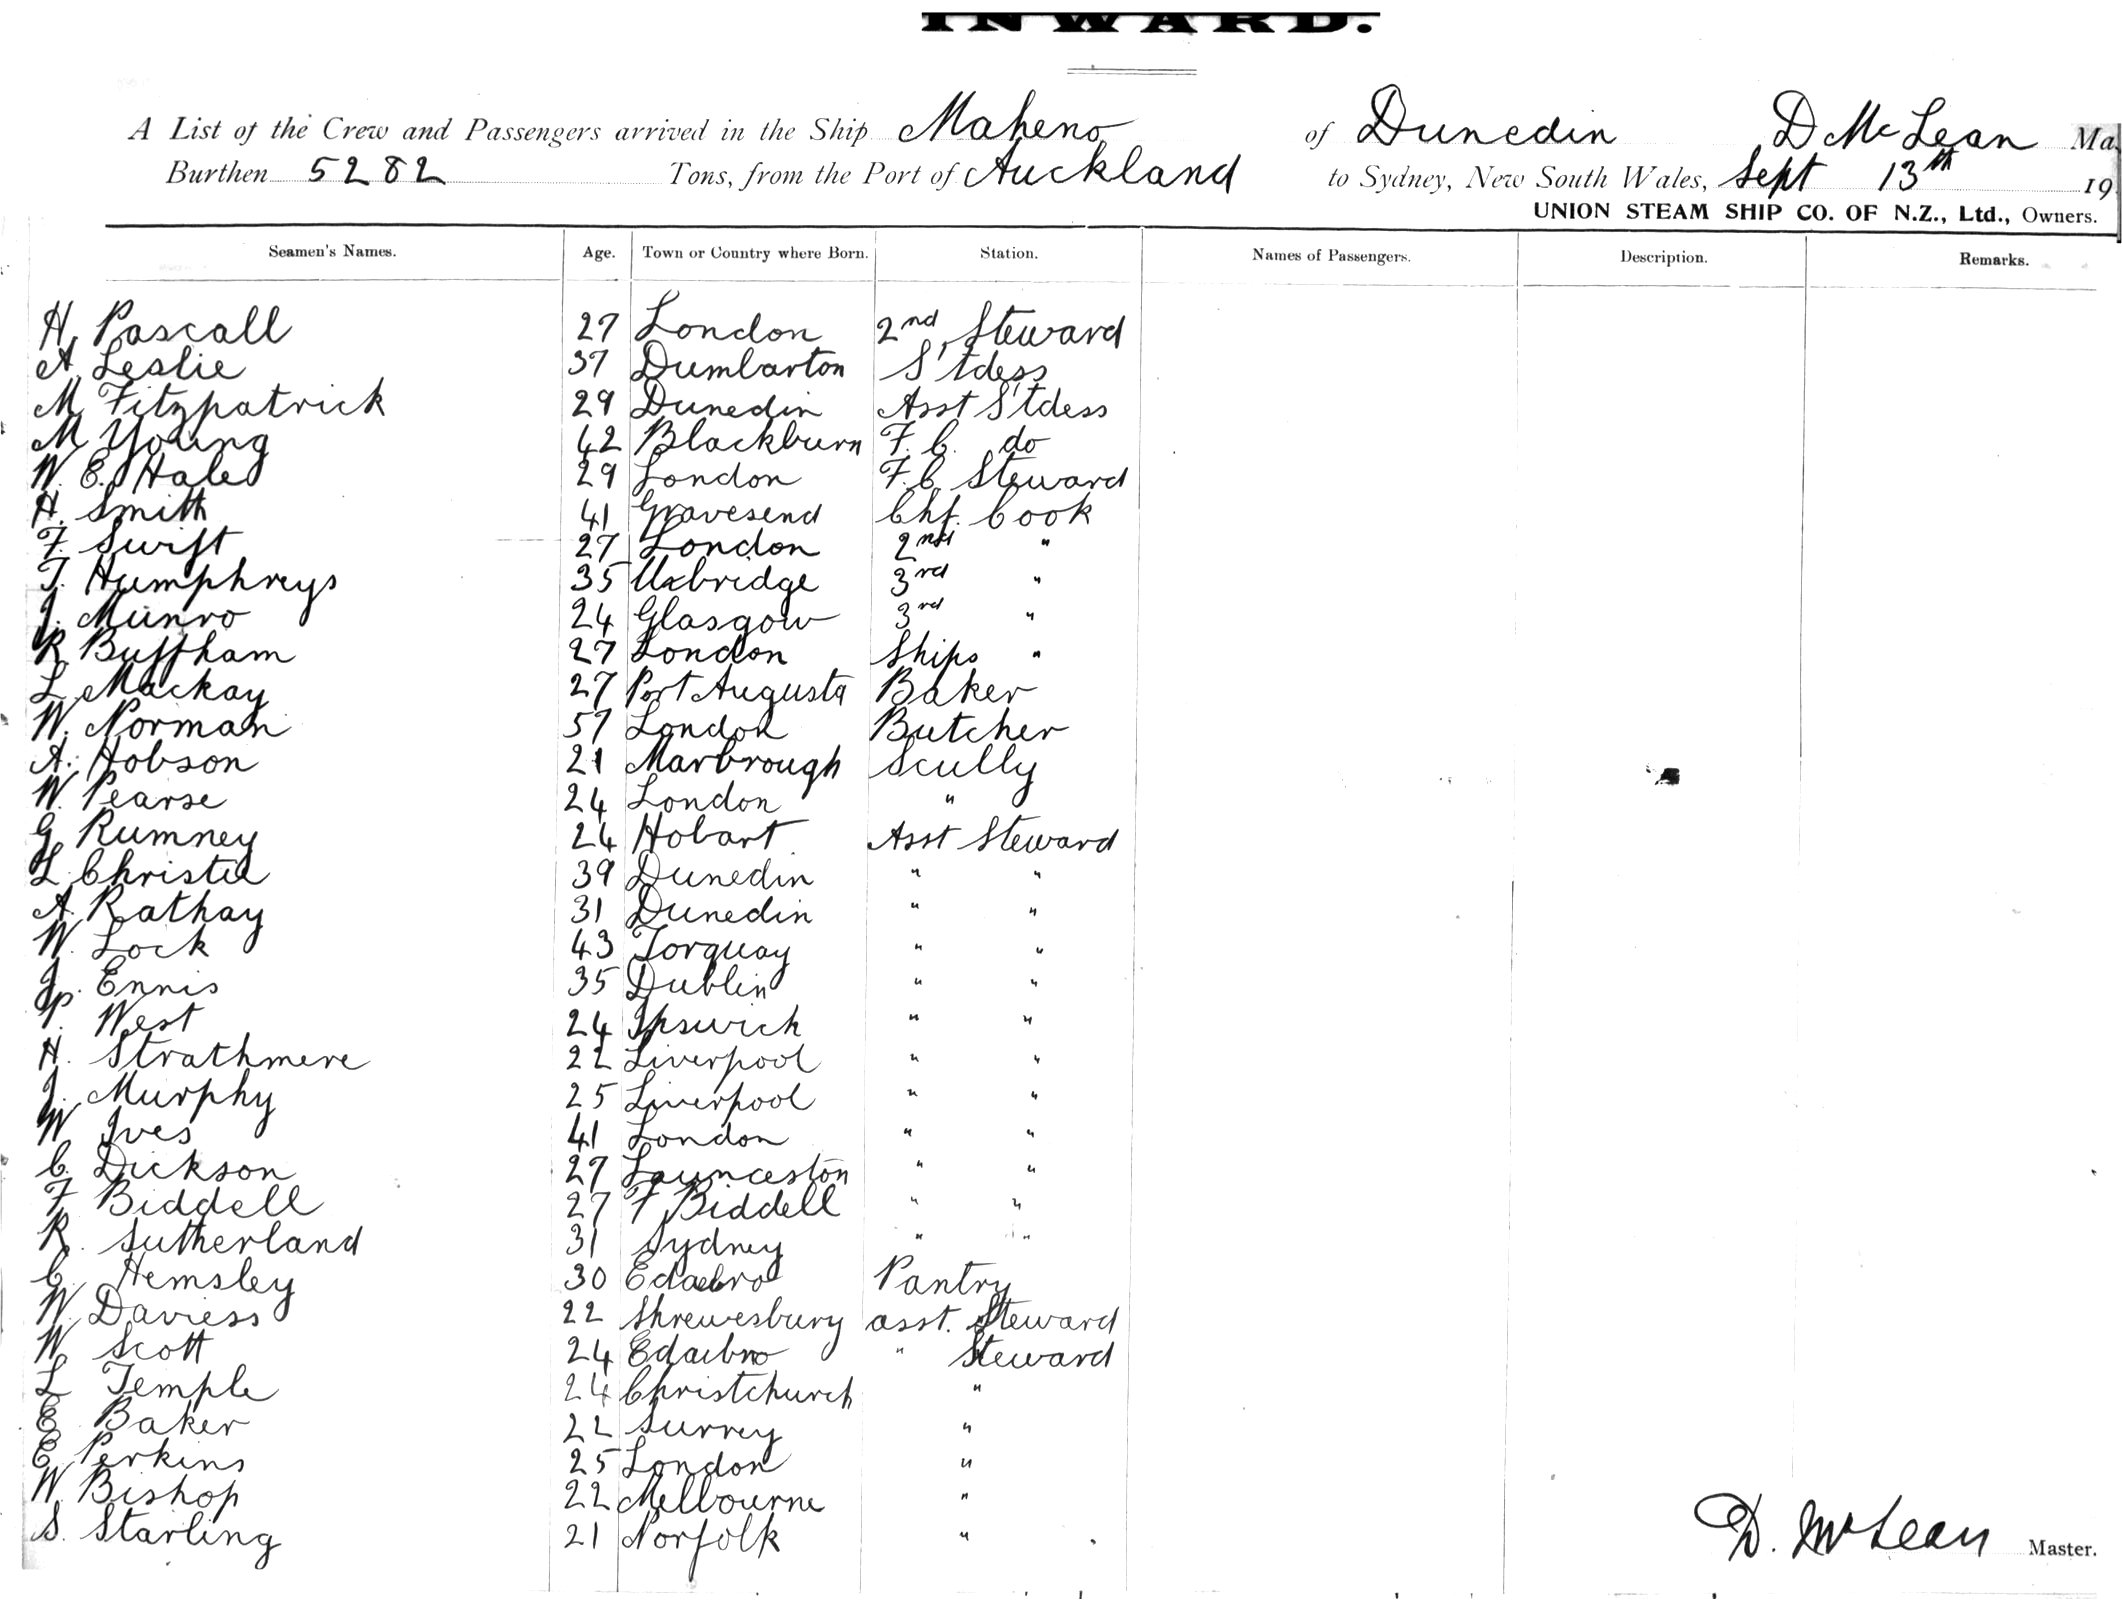 INWARD.
A List of the Crew and Passengers arrived in the Ship Maheno of Dunedin D McLean Ma
Burthen 5282 Tons, from the Port of Auckland to Sydney, New South Wales, Sept 13th 19
UNION STEAM SHIP CO. OF N.Z., Ltd., Owners.
Seamen's Names. Age. Town or Country where Born. Station. Names of Passengers. Description. Remarks.
H. Pascall 27 London 2nd Steward
A. Leslie 37 Dumbarton S'tdess
M Fitzpatrick 29 Dunedin Asst S'tdess
M Young 42 Blackburn F. C. do
W. E. Hale 29 London F. C. Steward
H. Smith 41 Gravesend Chf. Cook
F. Swift 27 London 2nd "
T. Humphreys 35 Uxbridge 3rd "
J. Munro 24 Glasgow 3rd "
R Buffham 27 London Ships "
L Mackay 27 Port Augusta Baker
W. Norman 57 London Butcher
A. Hobson 21 Marbrough Scully
W. Pearse 24 London "
G Rumney 24 Hobart Asst Steward
L Christie 39 Dunedin " "
A. Rathay 31 Dunedin " "
W. Lock 43 Torquay " "
J. Ennis 35 Dublin " "
P. West 24 Ipswich " "
H. Strathmere 22 Liverpool " "
J. Murphy 25 Liverpool " "
W Ives 41 London " "
C. Dickson 27 Launceston " "
F Biddell 27 F Biddell " "
R. Sutherland 31 Sydney " "
C. Hemsley 30 Pantry
W. Daviess 22 Shrewesbury asst. Steward
W Scott 24 " Steward
L Temple 24 Christchurch "
E Baker 22 Surrey "
E Perkins 25 London "
W Bishop 22 Melbourne "
S. Starling 21 Norfolk "
D. McLean Master.